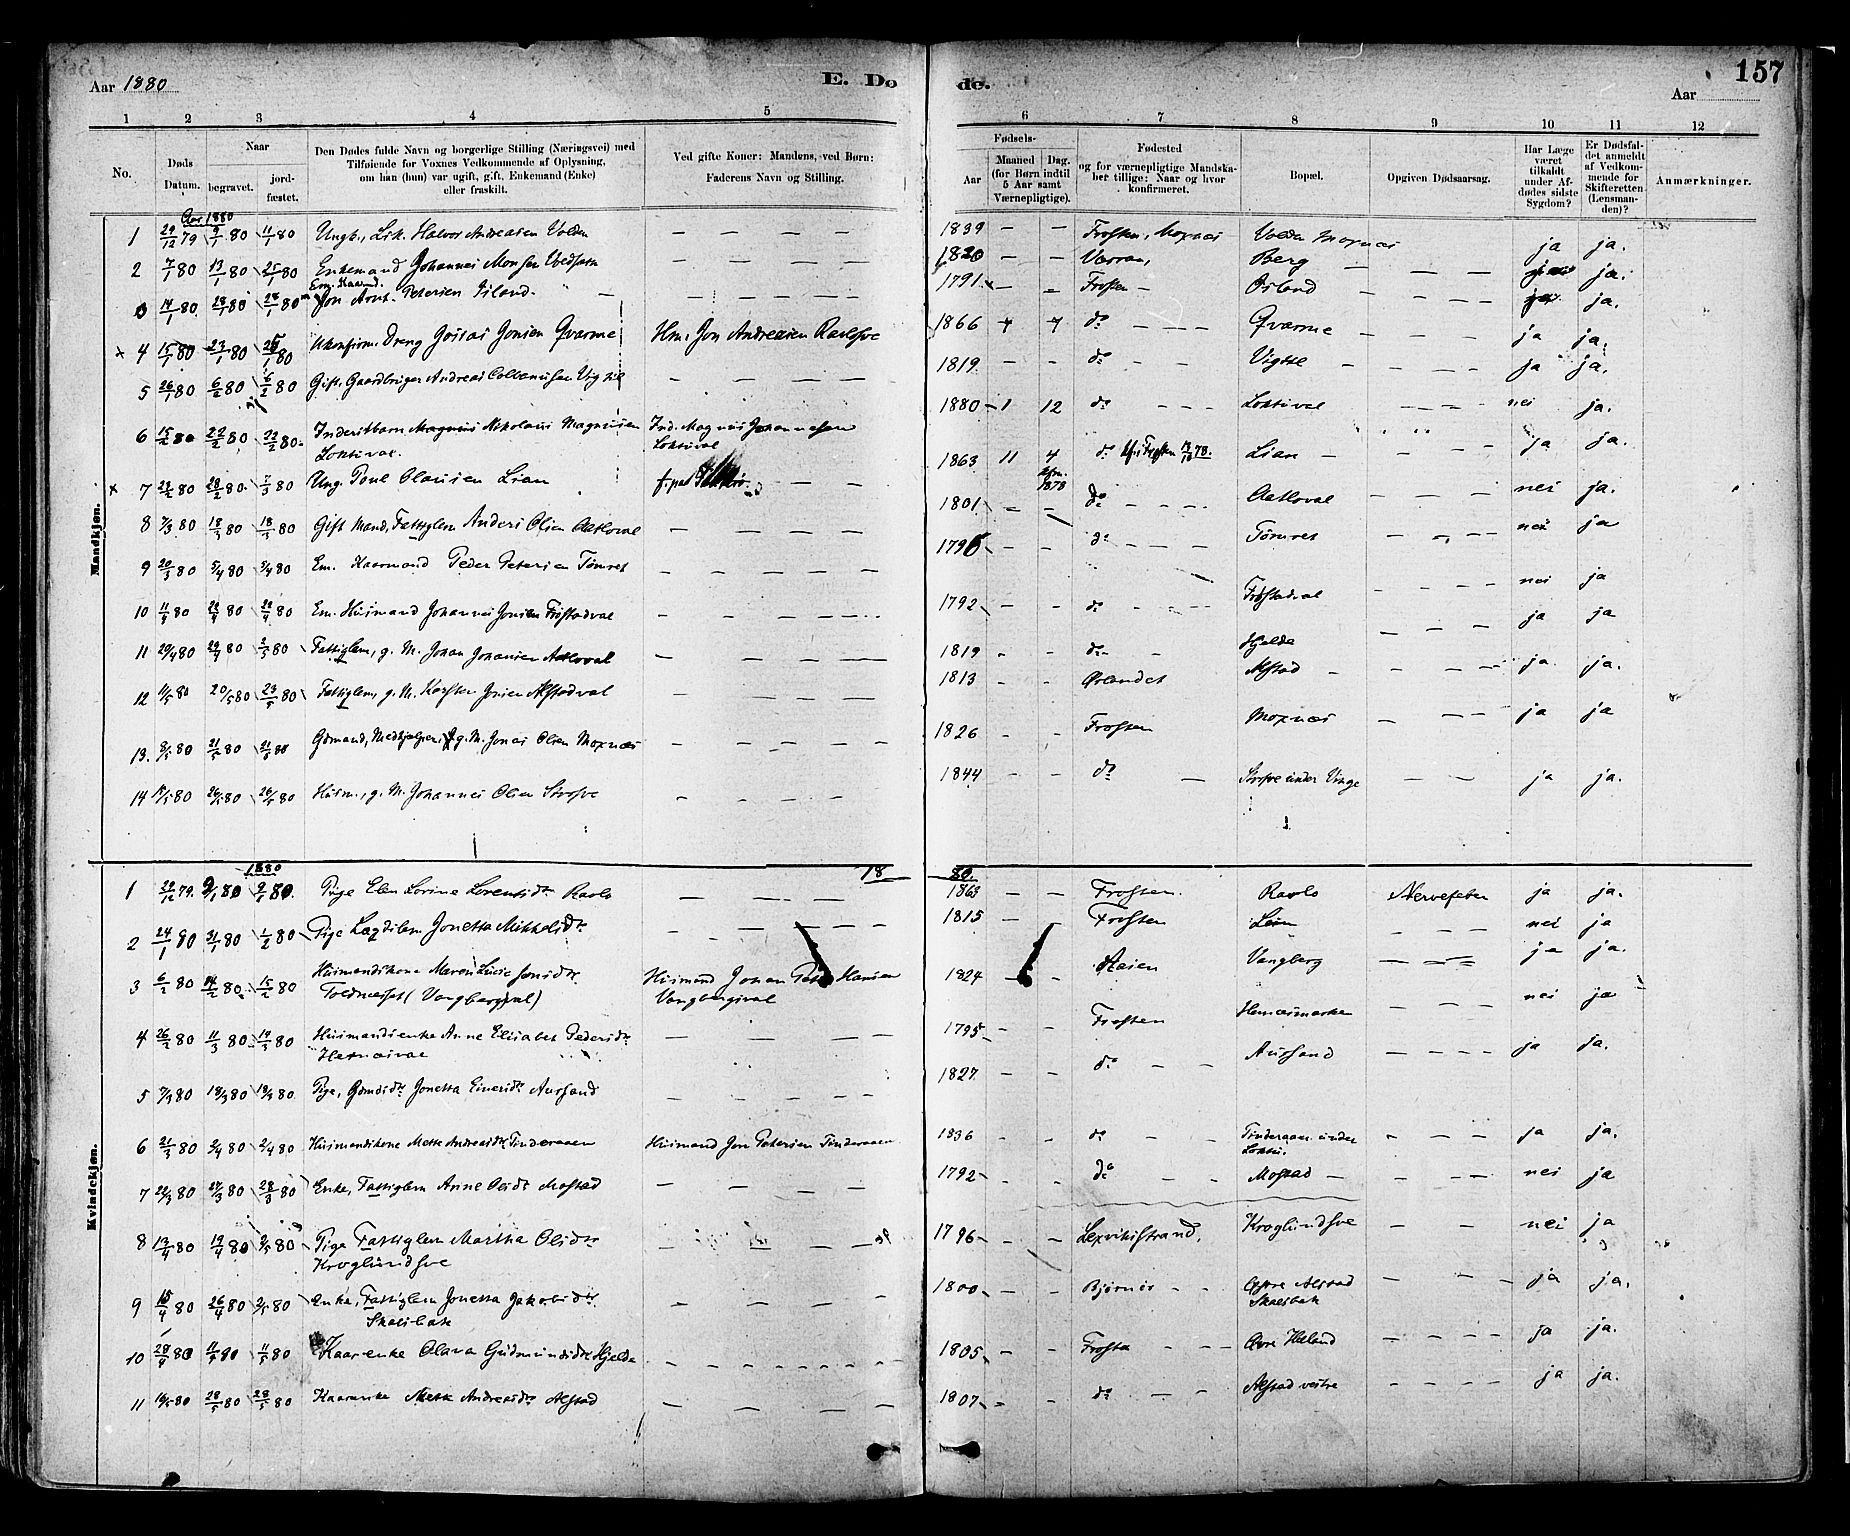 157
Aar 1880
E. Dø
de.
Aar
1 2 3 4 5 6 7 8 9 10 11 12
No.
Døds Datum.
Naar
begravet.
jordfæstet.
Den Dødes fulde Navn og borgerlige Stilling (Næringsvei) med
Tilføiende for Voxnes Vedkommende af Oplysning,
om han (hun) var ugift, gift, Enkemand (Enke)
eller fraskilt.
Ved gifte Koner: Mandens, ved Børn:
Faderens Navn og Stilling.
Fødsels-
Aar
Maaned Dag.
(for Børn indtil
5 Aar samt
Værnepligtige).
Fødested
og for værnepligtige Mandskaber tillige: Naar og hvor
konfirmeret.
Bopæl.
Opgiven Dødsaarsag.
Har Læge
været
tilkaldt
under Afdødes sidste
Sygdom?
Er Dødsfaldet anmeldt
af Vedkommende for
Skifteretten
(Lensmanden)?
Anmærkninger.
Mandkjøn.
Aar 1880
1 29/12 79 9/1 80 11/1 80 Ungk., Lsk. Halvor Andreasen Volden — 1839 — — Frosten, Moxnes Volden Moxnes ja ja.
2 7/1 80 13/1 80 25/1 80 Enkemand Johannes Monsen — 1820 — — Værran, Berg — ja.
14/1 80 28/1 80 28/1 80 Em. Kaarmd. Jon Arnt Petersen — 1791 — — Frosten — ja.
x 4 15/1 80 23/1 80 25/1 80 Ukonfirm. Dreng Jonsen Qvarme Hm. Jon Andreasen 1866 7 7 do — Qvarme — ja ja.
5 26/1 80 6/2 80 6/2 80 Gift, Gaardbruger Andreas — 1819 — — do — — ja ja.
6 15/2 80 22/2 80 22/2 80 Inderstbarn Nikolaus Magnusen
Loktuval. Ind. Magnus Johannesen
Loktuval 1880 1 12 do — Loktuval — nei ja.
x 7 22/2 80 28/2 80 7/3 80 Ung. Poul Olausen Lian — 1863 11 4 do Lian — ja ja.
8 7/3 80 18/3 80 18/3 80 Gift Mand, Fattiglem Anders Olsen Aatloval — 1801 — — do — Aatloval nei ja.
9 20/3 80 5/4 80 5/4 80 Em. Kaarmand Peder Petersen Tømret — 1795 — — do — Tømret — nei ja
10 11/4 80 22/4 80 22/4 80 Em. Husmand Johannes Jonsen Frøstadval — 1792 — — do — Frøstadval nei ja
11 20/4 80 29/4 80 2/5 80 Fattiglem, g. M. Johan Johansen Aatloval — 1819 — — do — Hjelde — ja ja
12 11/5 80 20/5 80 23/5 80 Fattiglem, g. M. Karsten Jonsen Alstadval — 1813 — — Ørlandet Alstad — ja. ja.
13. 8/5 80 21/5 80 21/5 80 Gdmand, Medhjelper, g. M. Jonas Olsen Moxnæs — 1826 — — Frosten Moxnæs — ja ja
14 18/5 80 26/5 80 26/5 80 Husm., g. M. Johannes Olsen — 1844 — — do — under Vinge — ja ja.
Kvindekjøn.
1880
18
80.
1 22/12 79. 9/1 80 9/1 80. Pige Elen Lorine Lorentsdtr Ravlo — 1863 — — Frosten. Ravlo Nervefeber ja ja.
2 24/1 80 31/1 80 1/2 80 Pige Lægdslem Jonetta Mikkelsdtr — 1815 — Frosten Leim — nei ja
3 6/2 80 14/2 80. 15/2 80 Husmandskone Maren Lucie Jonsdtr
(Vangbergsval) Husmand Johan Hansen
Vangbergsval 1824 — — Vangberg — ja ja.
4 26/2 80 11/3 80 14/3 80 Husmandsenke Anne Elisabet Pedersdtr — 1795 — — Frosten — nei ja
5 7/3 80 19/3 80 19/3 80. Pige, Gdmdsdtr Jonetta Einersdtr Aursand — 1827. — — do — Aursand — ja ja.
6 21/3 80 2/4 80 2/4 80 Husmandskone Mette Andreasdtr Tinderaaen Husmand Jon Petersen Tinderaaen 1836 — — do — Tinderaaen under
— ja ja.
7 22/3 80 27/3 80 28/3 80 Enke, Fattiglem Anne Olsdtr Mostad — 1792 — — do Mostad — nei ja
8 13/4 80 19/4 80 2/5 80 Pige Fattiglem Martha Olsdtr
— 1796 — — Lexvikstrand, — nei ja
9 15/4 80 26/4 80 2/5 80 Enke, Fattiglem Jonetta Jakobsdtr
Skalsbak — 1800 — — Bjørnør — Alstad
Skalsbak — ja ja.
10 28/4 80 11/5 80 11/5 80 Kaarenke Olava Gudmundsdtr Hjelde — 1805 — — Frosta — — ja ja.
11 19/5 80 28/5 80 28/5 80 Kaarenke Mette Andreasdtr Alstad — 1807 — — do — Alstad vestre — ja ja.